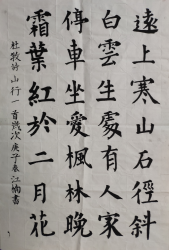 遠上寒山石徑斜
白雲生處有人家
停車坐愛楓林晚
霜葉紅於二月花
杜牧詩山行一首歲次庚子春江楠書